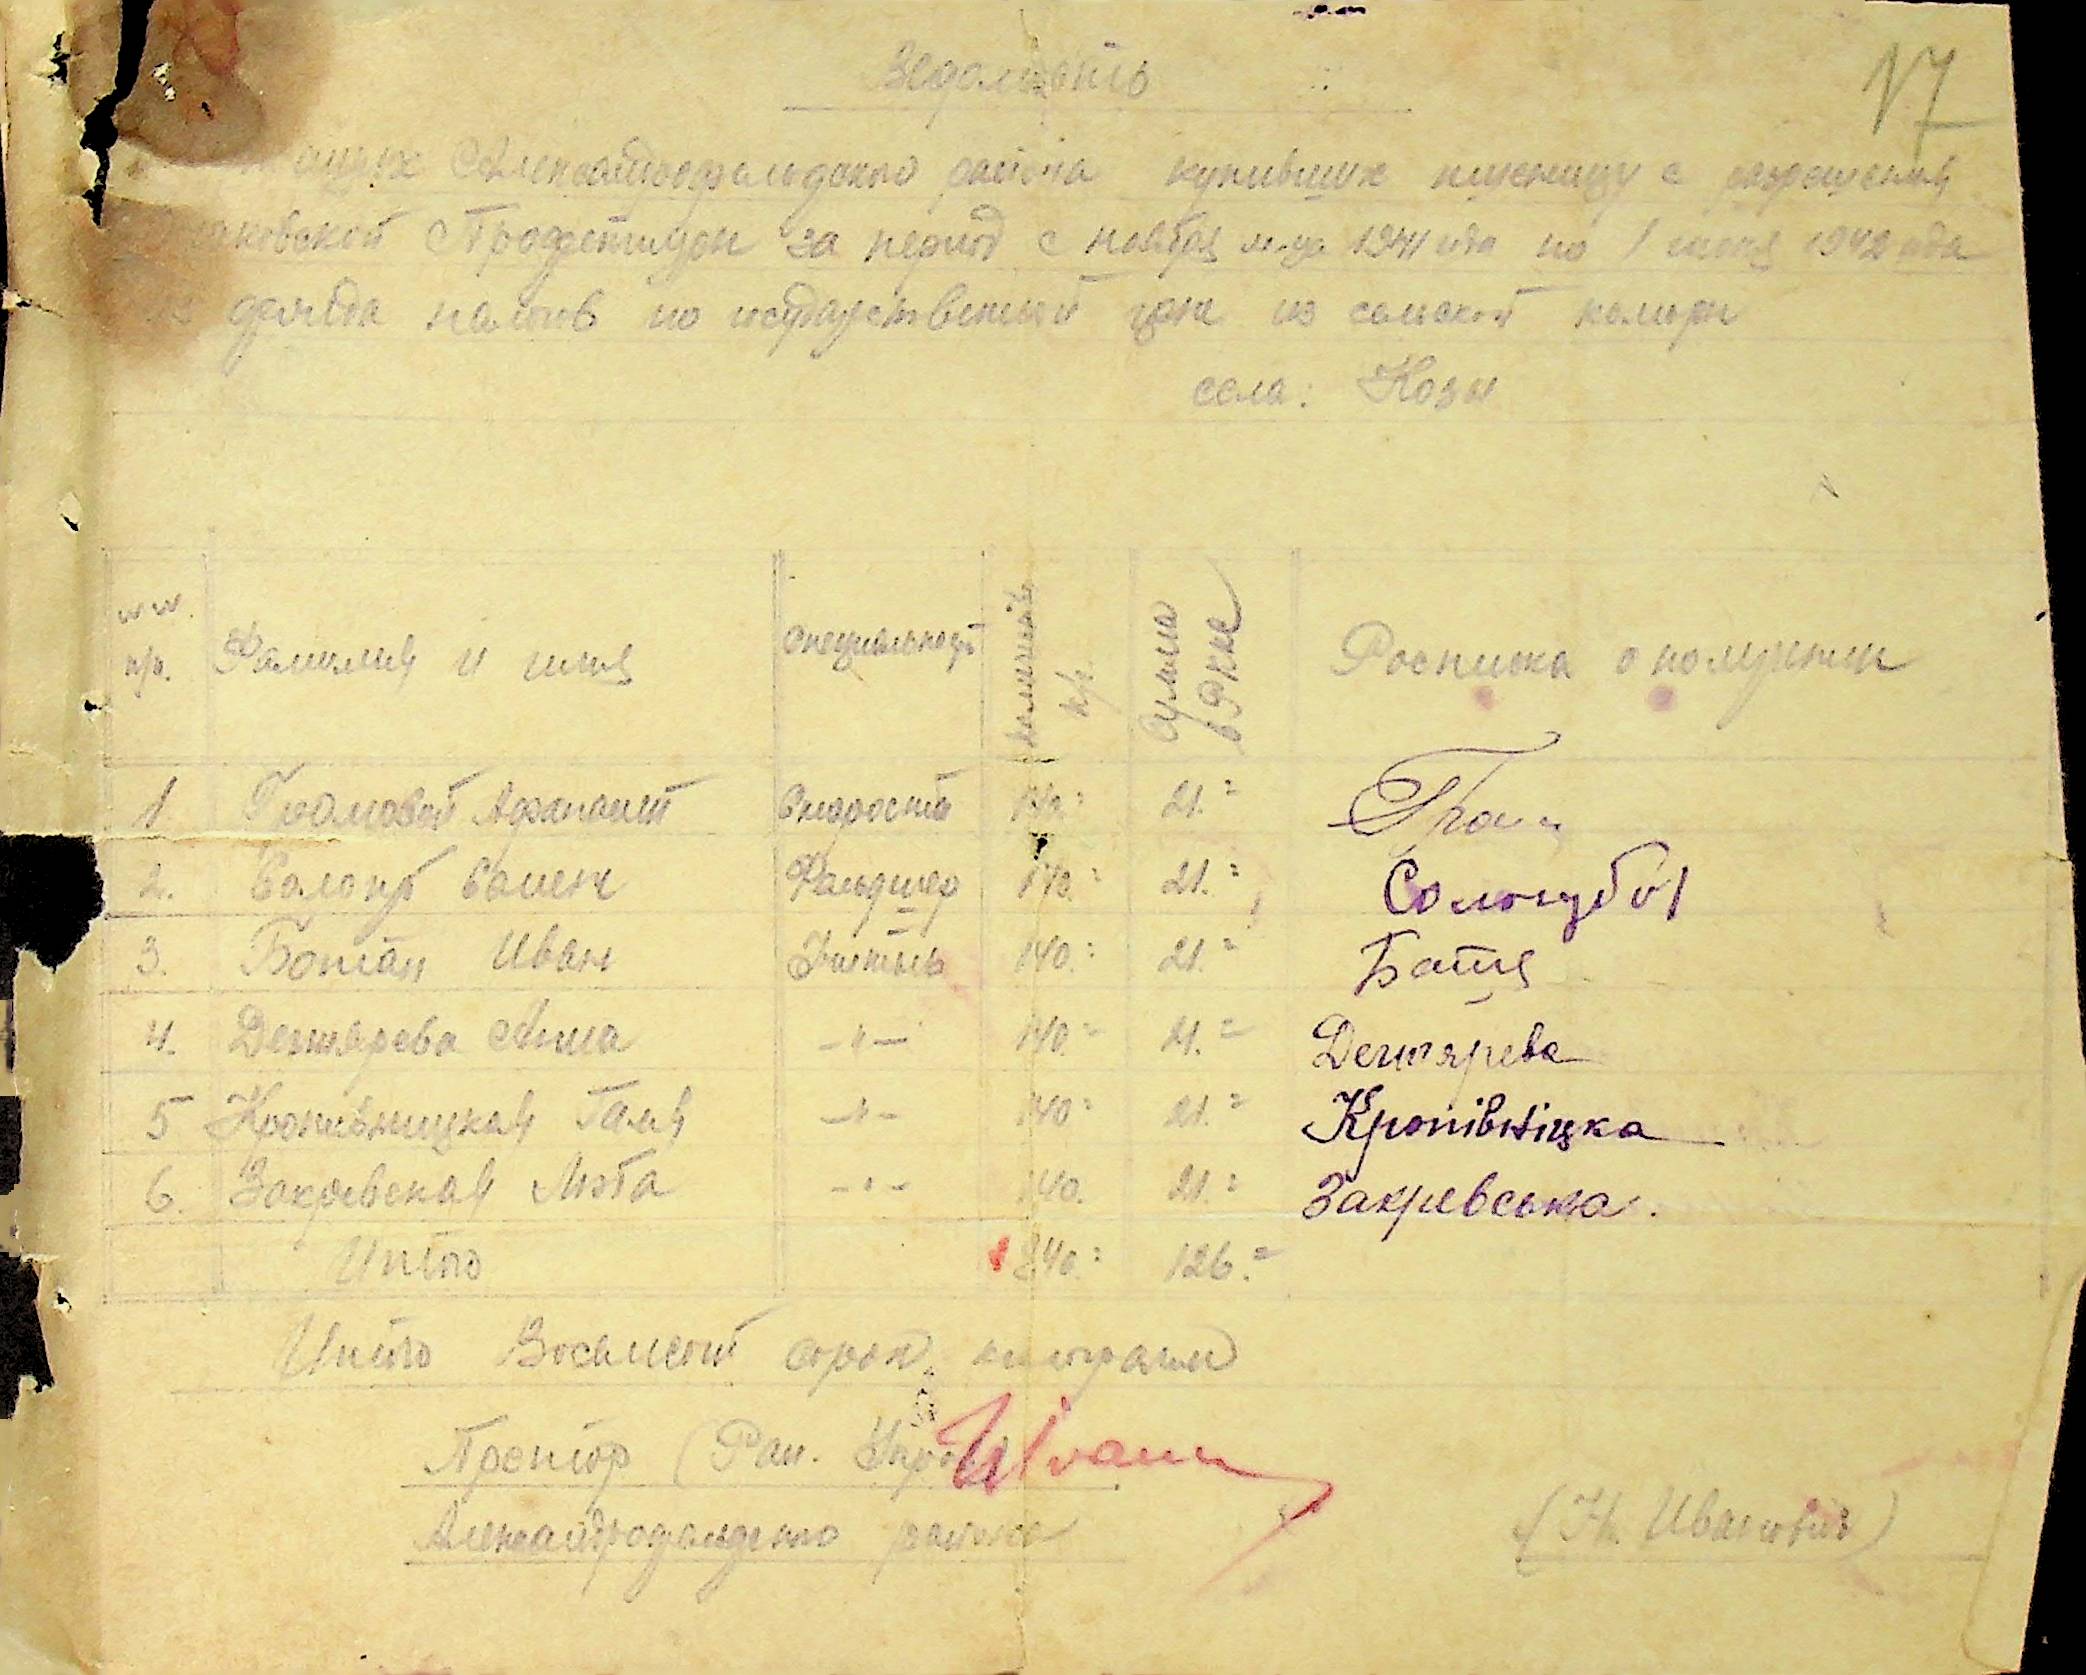 17
Ведомость
Александрофельдского района купивших пшеницу с разрешения
Префектуры за период с ноября м-ца 1941 года по 1 июня 1942 года
налогов по государственной цене из сельской коморы
села: Козы
№№ п/п. Фамилия и имя Специальность Количество к/г. Сумма в РККС Росписка о получении
1. Громовой Афанасий 140.= 21.= Гром
2. Сологуб Фельдшер 140.= 21.= Сологуб
3. Иван Учитель 140.= 21.=
4. Дегтярева Анна —"— 140.= 21.= Дегтярева
5 Кропивницкая Галя —"— 140= 21.= Кропівніцка
6. Закревская —"— 140. 21.= Закревська.
Итого 840.= 126.=
Итого Восемсот сорок килограмм
Претор (Рай. Управ) Ивани
Александрофельдского района (Н. Иванович)